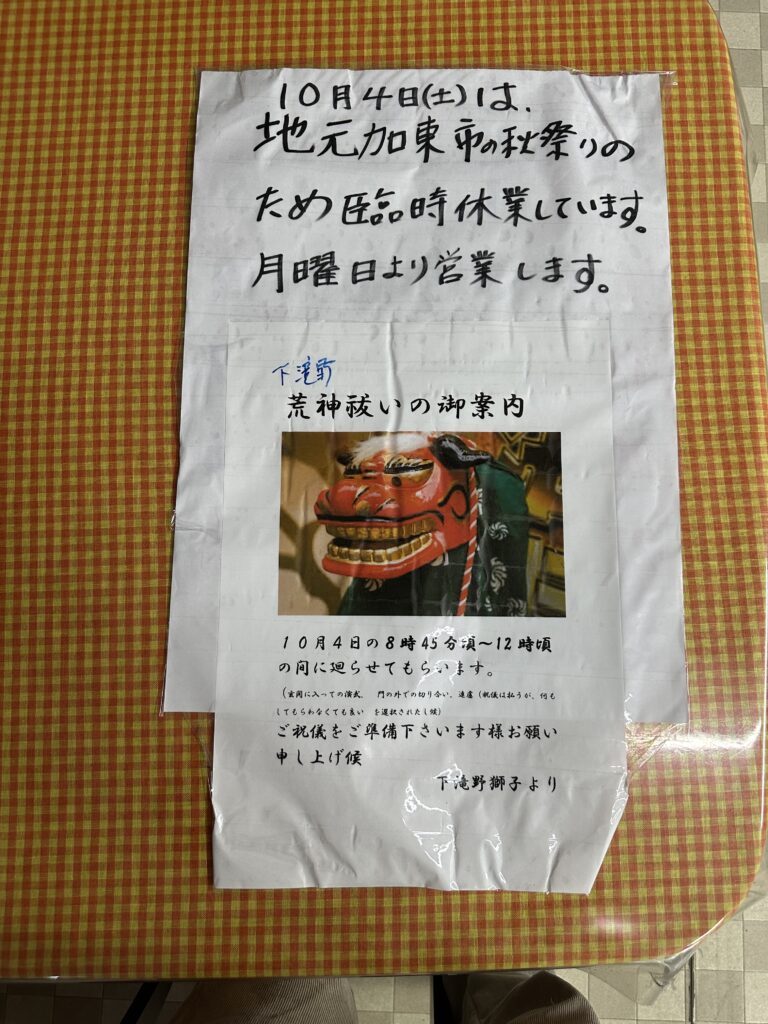 10月4日(土)は、
地元加東市の秋祭りの
ため臨時休業しています。
月曜日より営業します。
下滝野
荒神祓いの御案内
10月4日の8時45分頃~12時頃
の間に廻らせてもらいます。
(玄関に入っての演武、 門の外での切り合い、遠慮(祝儀は払うが、何も
してもらわなくても良い を選択されたし候)
ご祝儀をご準備下さいます様お願い
申し上げ候
下滝野獅子より